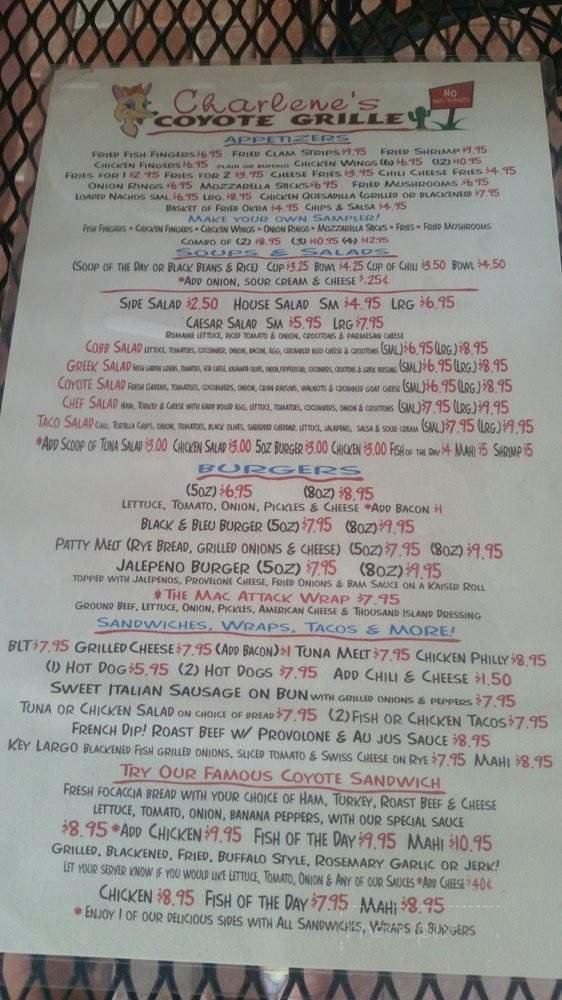 Charlene's
NO
COYOTE GRILLE
APPETIZERS
FRIED FISH FINGERS $6.95 FRIED CLAM STRIPS $9.95 FRIED SHRIMP $9.95
CHICKEN FINGERS $6.95 PLAIN OR BUFFALO CHICKEN WINGS (6) $6.95 (12) $10.95
FRIES FOR 1 $2.95 FRIES FOR 2 $3.95 CHEESE FRIES $3.95 CHILI CHEESE FRIES $4.95
ONION RINGS $6.95 MOZZARELLA STICKS $6.95 FRIED MUSHROOMS $6.95
LOADED NACHOS SML $6.95 LRG $8.95 CHICKEN QUESADILLA (GRILLED OR BLACKENED) $7.95
BASKET OF FRIED OKRA $4.95 CHIPS & SALSA $4.95
MAKE YOUR OWN SAMPLER!
FISH FINGERS • CHICKEN FINGERS • CHICKEN WINGS • ONION RINGS • MOZZARELLA STICKS • FRIES • FRIED MUSHROOMS
COMBO OF (2) $8.95 (3) $10.95 (4) $12.95
SOUPS & SALADS
(SOUP OF THE DAY OR BLACK BEANS & RICE) CUP $3.25 BOWL $4.25 CUP OF CHILI $3.50 BOWL $4.50
*ADD ONION, SOUR CREAM & CHEESE $.25¢
SIDE SALAD $2.50 HOUSE SALAD SM $4.95 LRG $6.95
CAESAR SALAD SM $5.95 LRG $7.95
ROMAINE LETTUCE, DICED TOMATO & ONION, CROUTONS & PARMESAN CHEESE
COBB SALAD LETTUCE, TOMATOES, CUCUMBER, ONION, BACON, EGG, CRUMBLED BLEU CHEESE & CROUTONS (SML) $6.95 (LRG.) $8.95
GREEK SALAD FRESH GARDEN GREENS, TOMATOES, FETA CHEESE, KALAMATA OLIVES, ONION, PEPPERONCINI, CUCUMBERS, CROUTONS & GREEK DRESSING (SML) $6.95 (LRG.) $8.95
COYOTE SALAD FRESH GREENS, TOMATOES, CUCUMBERS, ONION, CRAN RAISINS, WALNUTS & CRUMBLED GOAT CHEESE (SML) $6.95 (LRG.) $8.95
CHEF SALAD HAM, TURKEY & CHEESE WITH HARD BOILED EGG, LETTUCE, TOMATOES, CUCUMBERS, ONION & CROUTONS (SML) $7.95 (LRG.) $9.95
TACO SALAD CHILI, TORTILLA CHIPS, ONION, TOMATOES, BLACK OLIVES, SHREDDED CHEDDAR, LETTUCE, JALAPENO, SALSA & SOUR CREAM (SML) $7.95 (LRG.) $9.95
*ADD SCOOP OF TUNA SALAD $3.00 CHICKEN SALAD $3.00 5OZ BURGER $3.00 CHICKEN $3.00 FISH OF THE DAY $4 MAHI $5 SHRIMP $5
BURGERS
(5OZ) $6.95 (8OZ) $8.95
LETTUCE, TOMATO, ONION, PICKLES & CHEESE *ADD BACON $1
BLACK & BLEU BURGER (5OZ) $7.95 (8OZ) $9.95
PATTY MELT (RYE BREAD, GRILLED ONIONS & CHEESE) (5OZ) $7.95 (8OZ) $9.95
JALEPENO BURGER (5OZ) $7.95 (8OZ) $9.95
TOPPED WITH JALEPENOS, PROVELONE CHEESE, FRIED ONIONS & BAM SAUCE ON A KAISER ROLL
*THE MAC ATTACK WRAP $7.95
GROUND BEEF, LETTUCE, ONION, PICKLES, AMERICAN CHEESE & THOUSAND ISLAND DRESSING
SANDWICHES, WRAPS, TACOS & MORE!
BLT $7.95 GRILLED CHEESE $7.95 (ADD BACON) $1 TUNA MELT $7.95 CHICKEN PHILLY $8.95
(1) HOT DOG $5.95 (2) HOT DOGS $7.95 ADD CHILI & CHEESE $1.50
SWEET ITALIAN SAUSAGE ON BUN WITH GRILLED ONIONS & PEPPERS $7.95
TUNA OR CHICKEN SALAD ON CHOICE OF BREAD $7.95 (2) FISH OR CHICKEN TACOS $7.95
FRENCH DIP! ROAST BEEF W/ PROVOLONE & AU JUS SAUCE $8.95
KEY LARGO BLACKENED FISH GRILLED ONIONS, SLICED TOMATO & SWISS CHEESE ON RYE $7.95 MAHI $8.95
TRY OUR FAMOUS COYOTE SANDWICH
FRESH FOCACCIA BREAD WITH YOUR CHOICE OF HAM, TURKEY, ROAST BEEF & CHEESE
LETTUCE, TOMATO, ONION, BANANA PEPPERS, WITH OUR SPECIAL SAUCE
$8.95 *ADD CHICKEN $9.95 FISH OF THE DAY $9.95 MAHI $10.95
GRILLED, BLACKENED, FRIED, BUFFALO STYLE, ROSEMARY GARLIC OR JERK!
LET YOUR SERVER KNOW IF YOU WOULD LIKE LETTUCE, TOMATO, ONION & ANY OF OUR SAUCES *ADD CHEESE $.40¢
CHICKEN $8.95 FISH OF THE DAY $7.95 MAHI $8.95
* ENJOY 1 OF OUR DELICIOUS SIDES WITH ALL SANDWICHES, WRAPS & BURGERS